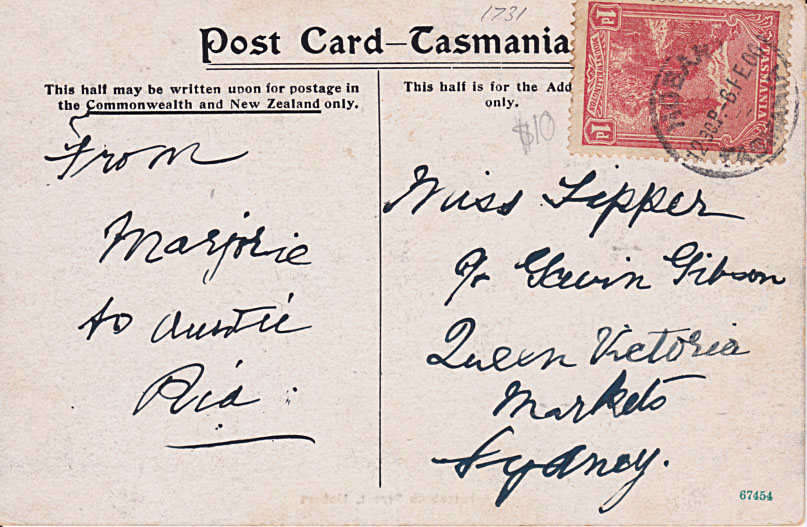 1731
Post Card–Tasmania
This half may be written upon for postage in
the Commonwealth and New Zealand only.
This half is for the Add
only.
$10
1d
TASMANIA
1d
HOBART
12.30P - 6 FE 06
TASMANIA
From
Marjorie
to Auntie
Ria.
Miss Lipper
c/o Gavin Gibson
Queen Victoria
Markets
Sydney.
67454